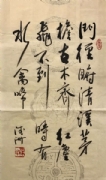 門徑俯清溪茅
檐古木齊紅塵
飛不到時有
水禽啼